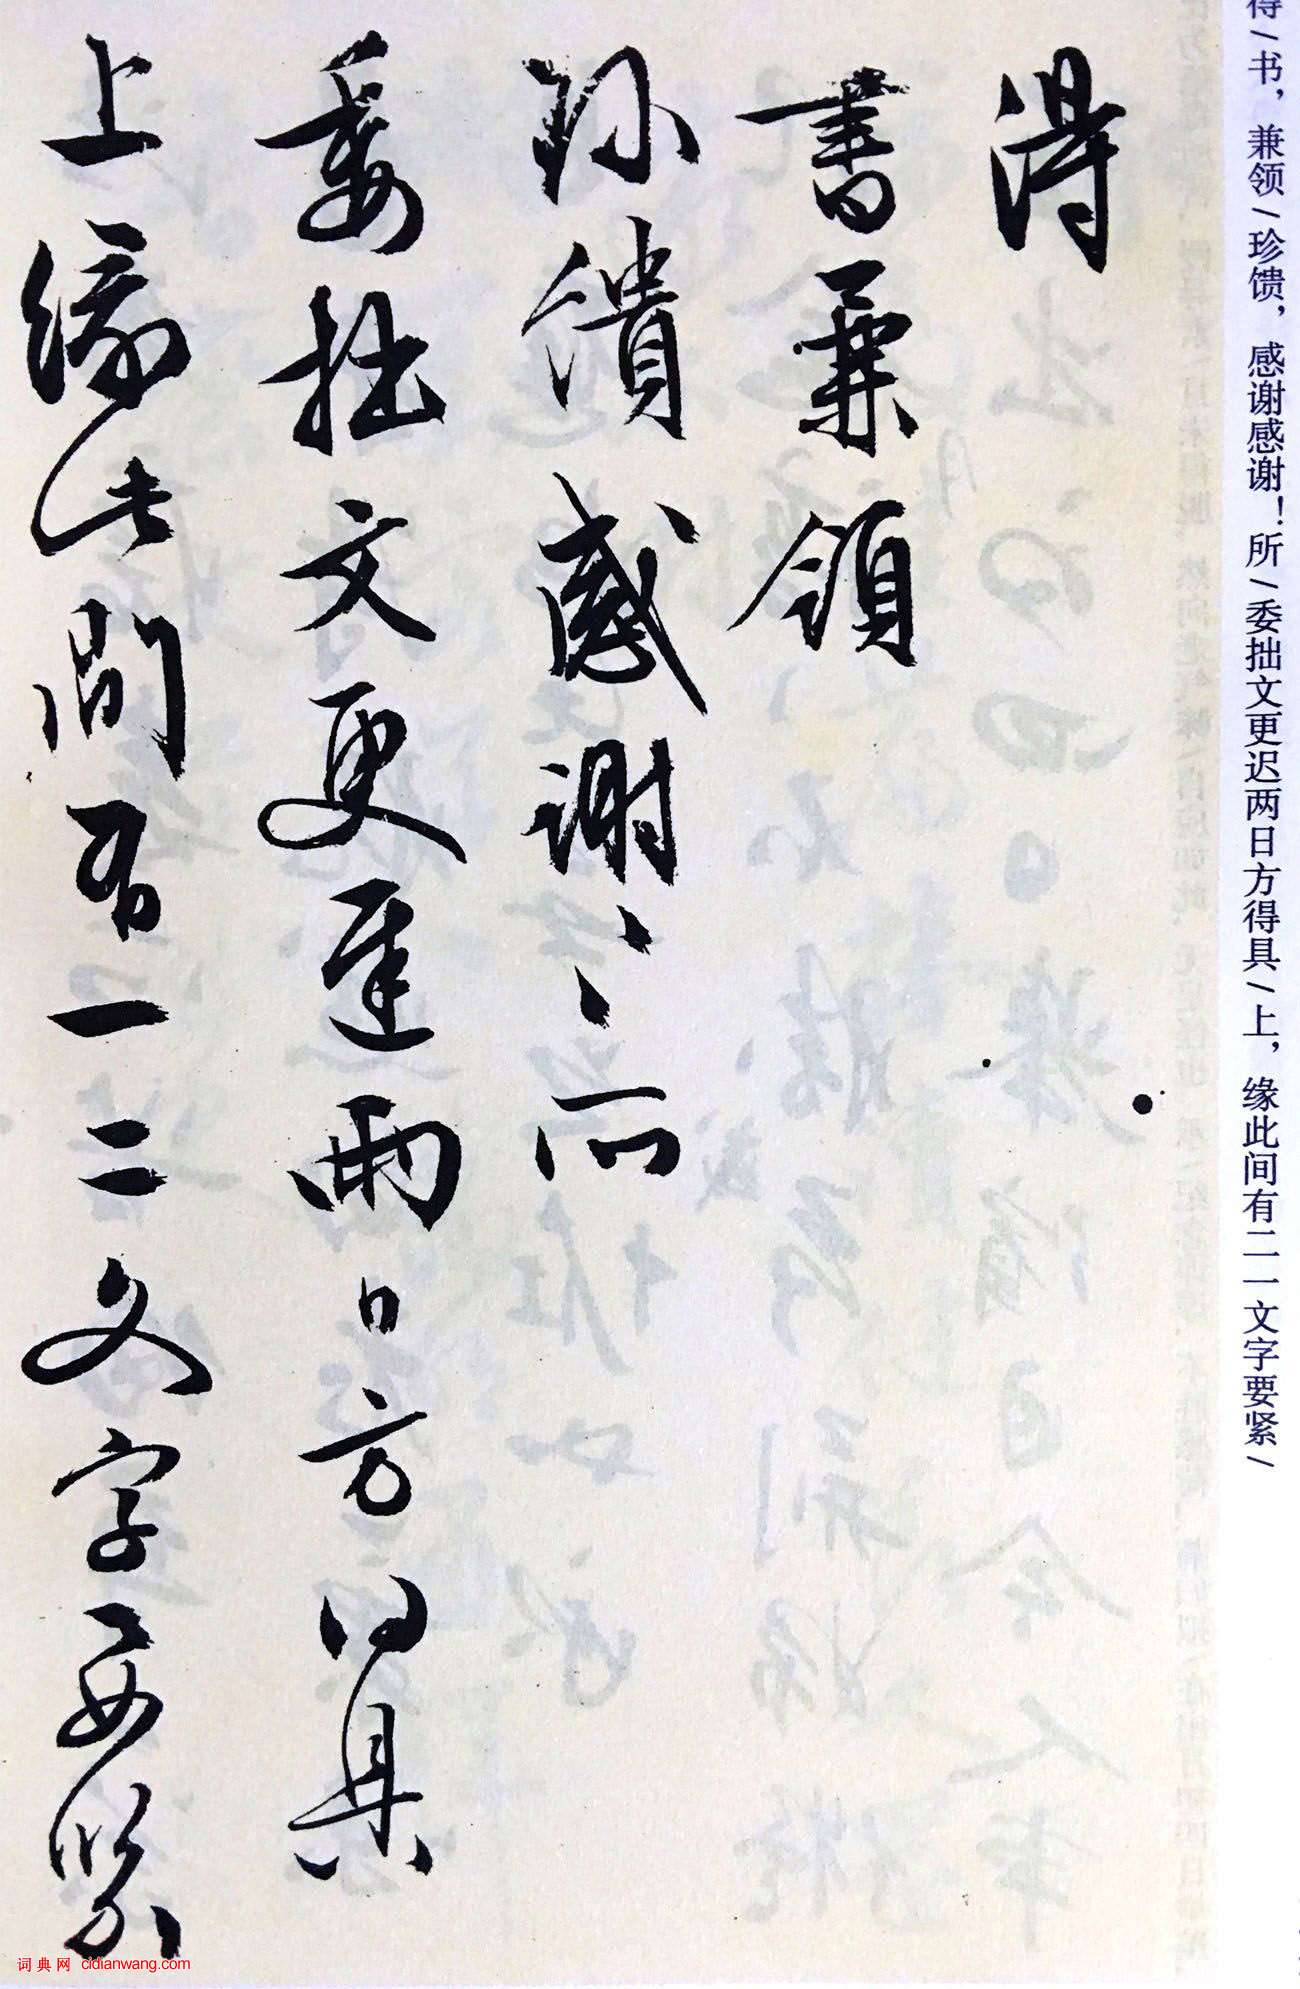 得/书，兼领/珍馈，感谢感谢！所/委拙文更迟两日方得具/上，缘此间有二一文字要紧/
得
書兼領
珍饋感謝〻所
委拙文更遲兩日方得具
上緣此間有一二文字要緊
词典网 cidianwang.com